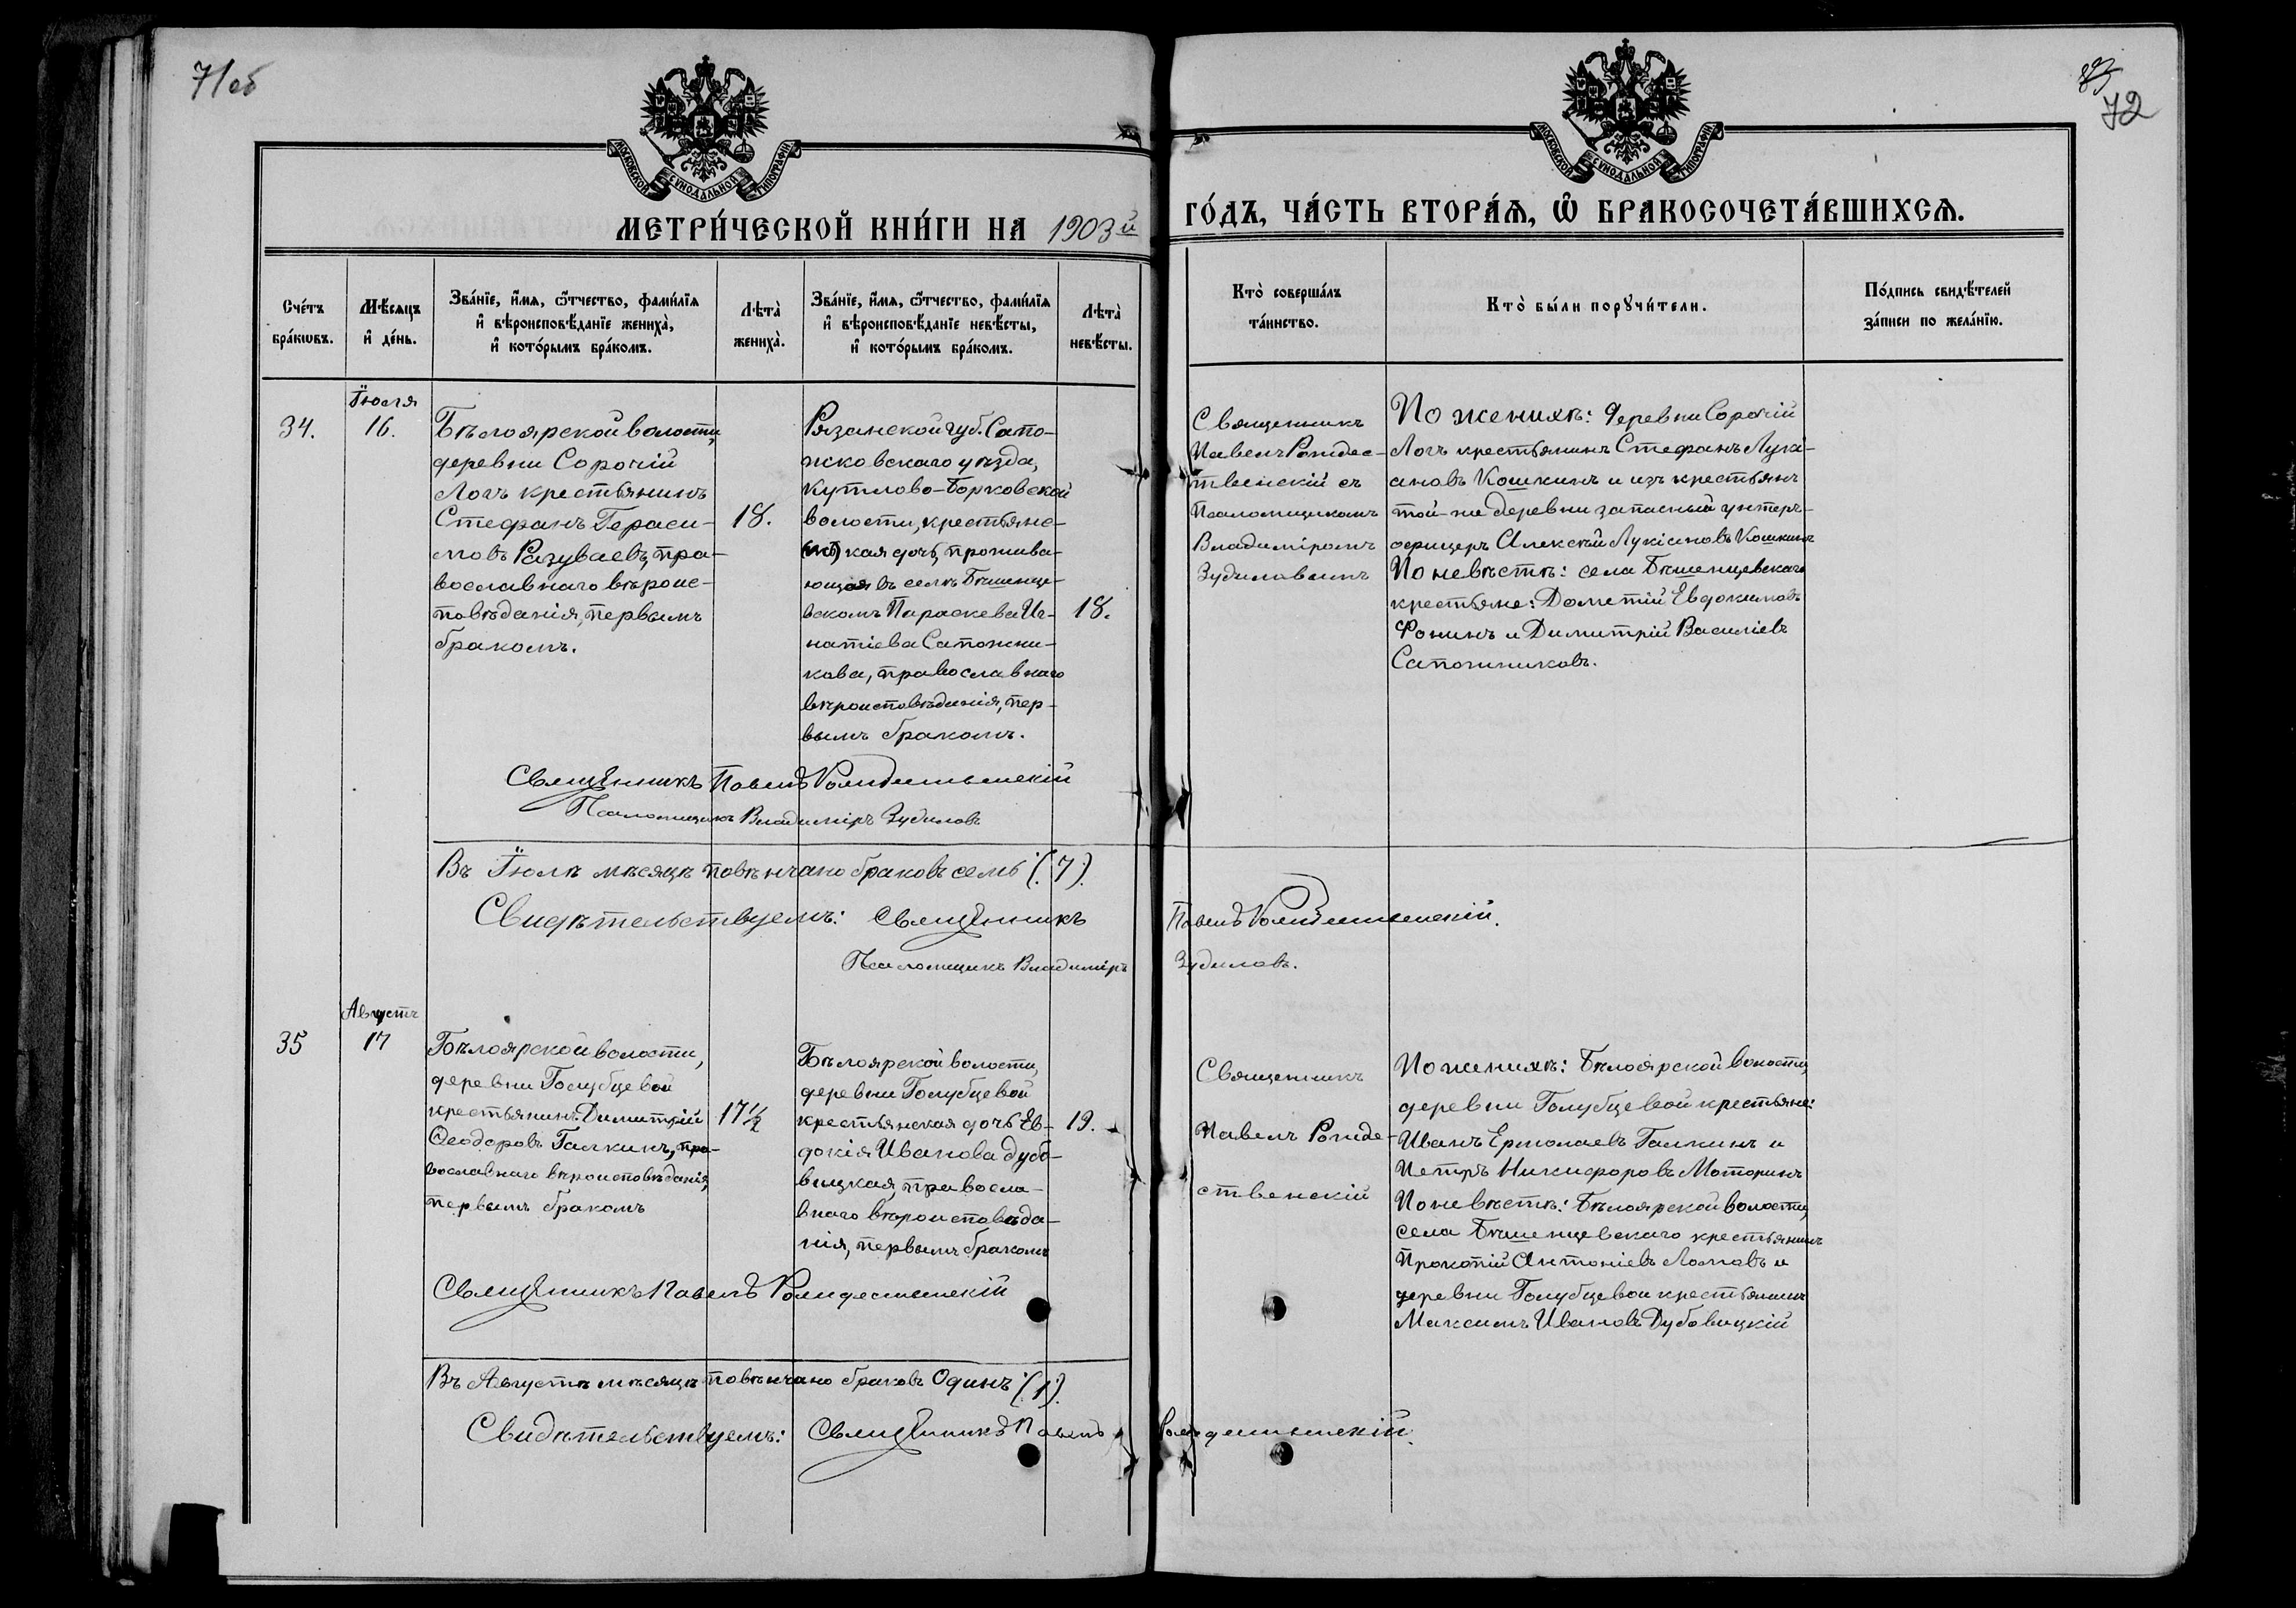 71об
83
72
МОСКОВСКОЙ СѴНОДАЛЬНОЙ ТИПОГРАФІИ.
МОСКОВСКОЙ СѴНОДАЛЬНОЙ ТИПОГРАФІИ.
МЕТРИ́ЧЕСКОЙ КНИ́ГИ НА 1903й
ГО́ДЪ, ЧА́СТЬ ВТОРА́Ѧ, Ѽ БРАКОСОЧЕТА́ВШИХСѦ.
Сче́тъ
бра́кѡвъ.
Мѣ́сѧцъ
и҆ де́нь.
Зва́нїе, и҆́мѧ, ѻ҆́тчество, фами́лїѧ
и҆ вѣроисповѣ́данїе жениха̀,
и҆ кото́рымъ бра́комъ.
Лѣ́та̀
жениха̀.
Зва́нїе, и҆́мѧ, ѻ҆́тчество, фами́лїѧ
и҆ вѣроисповѣ́данїе невѣ́сты,
и҆ кото́рымъ бра́комъ.
Лѣ́та̀
невѣ́сты.
Кто̀ соверша́лъ
та́инство.
Кто̀ бы́ли порꙋчи́тели.
По́дпись свидѣ́телей
за́писи по жела́нїю.
34.
Іюля
16.
Бѣлоярской волости,
деревни Сорочій
Логъ крестьянинъ
Стефанъ Гераси-
мовъ Разуваевъ, пра-
вославнаго вѣроис-
повѣданія, первымъ
бракомъ.
18.
Рязанской губ. Сапо-
жковскаго уѣзда,
Кутлово-Борковской
волости, крестьянс-
кая дочь, прожива-
ющая въ селѣ Бѣшенце-
вскомъ Параскева Иг-
натіева Сапожни-
кова, православнаго
вѣроисповѣданія, пер-
вымъ бракомъ.
18.
Священникъ
Павелъ Рождес-
твенскій съ
Псаломщикомъ
Владиміромъ
Зудиловымъ
По женихѣ: деревни Сорочій
Логъ крестьянинъ Стефанъ Лукі-
ановъ Кошкинъ и изъ крестьянъ
той-же деревни запасный унтеръ-
офицеръ Алексѣй Лукіановъ Кошкинъ
По невѣстѣ: села Бѣшенцевскаго
крестьяне: Дометій Евдокимовъ
Фонинъ и Димитрій Василіевъ
Сапожниковъ.
Священникъ Павелъ Рождественскій
Псаломщикъ Владиміръ Зудиловъ
Въ Іюлѣ мѣсяцѣ повѣнчано браковъ семь (7).
Свидѣтельствуемъ: Священникъ Павелъ Рождественскій.
Псаломщикъ Владиміръ Зудиловъ.
35
Августъ
17
Бѣлоярской волости,
деревни Голубцевой
крестьянинъ Димитрій
Ѳеодоровъ Галкинъ, пра-
вославнаго вѣроисповѣданія,
первымъ бракомъ
17½
Бѣлоярской волости,
деревни Голубцевой
крестьянская дочь Ев-
докія Иванова Дубо-
вицкая, правосла-
внаго вѣроисповѣда-
нія, первымъ бракомъ
19.
Священникъ
Павелъ Рожде-
ственскій
По женихѣ: Бѣлоярской волости,
деревни Голубцевой крестьяне:
Иванъ Ермолаевъ Галкинъ и
Петръ Никифоровъ Моторинъ
По невѣстѣ: Бѣлоярской волости,
села Бѣшенцевскаго крестьянинъ
Прокопій Антоніевъ Ломовъ и
деревни Голубцевой крестьянинъ
Максимъ Ивановъ Дубовицкій
Священникъ Павелъ Рождественскій
Въ Августѣ мѣсяцѣ повѣнчано браковъ Одинъ (1).
Свидѣтельствуемъ: Священникъ Павелъ Рождественскій.